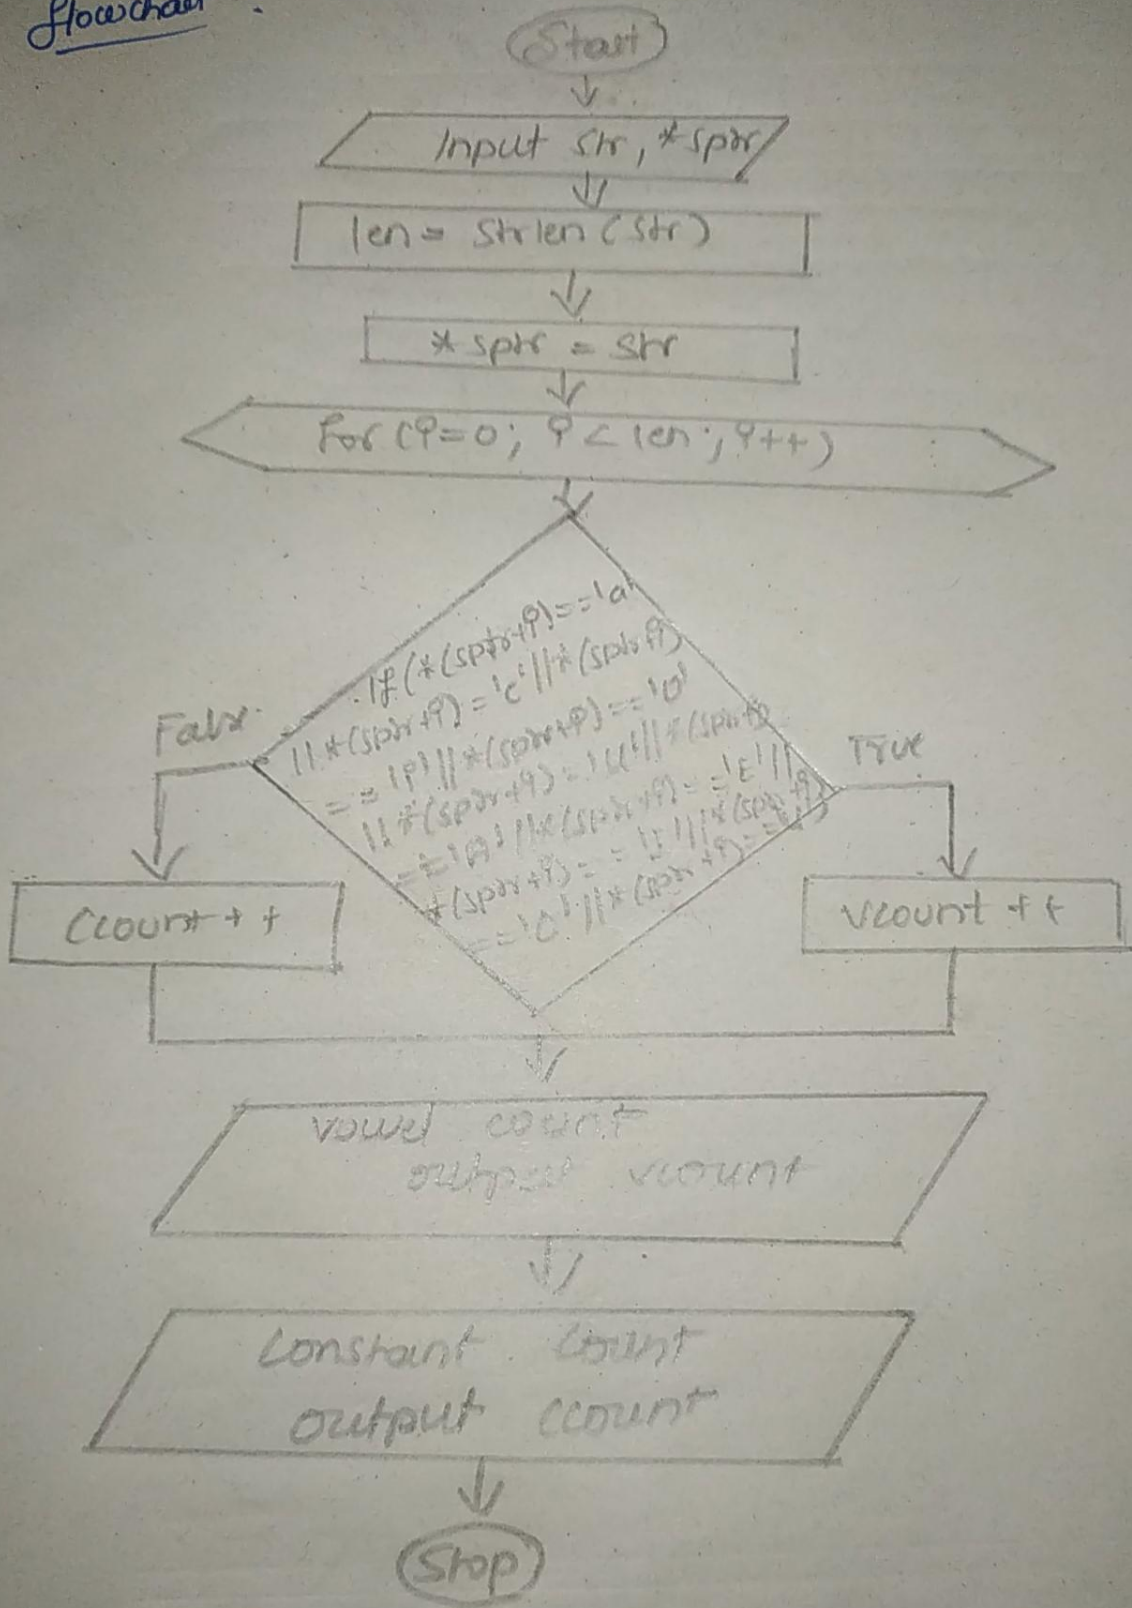 flowchart.
Start
Input str, *sptr
len = strlen (str)
* sptr = str
for (i=0; i < len; i++)
If (*(sptr+i)=='a'
|| *(sptr+i)='e'||*(sptr+i)
=='i'||*(sptr+i)=='o'
|| *(sptr+i)='u'||*(sptr+i)
=='A'||*(sptr+i)=='E'||
*(sptr+i)=='I'||*(sptr+i)
=='O'||*(sptr+i)=='U')
False
True
Ccount ++
vcount ++
vowel count
output vcount
Constant count
output ccount
Stop